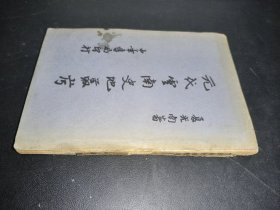 夏光南著
元代雲南史地叢考
中華書局印行